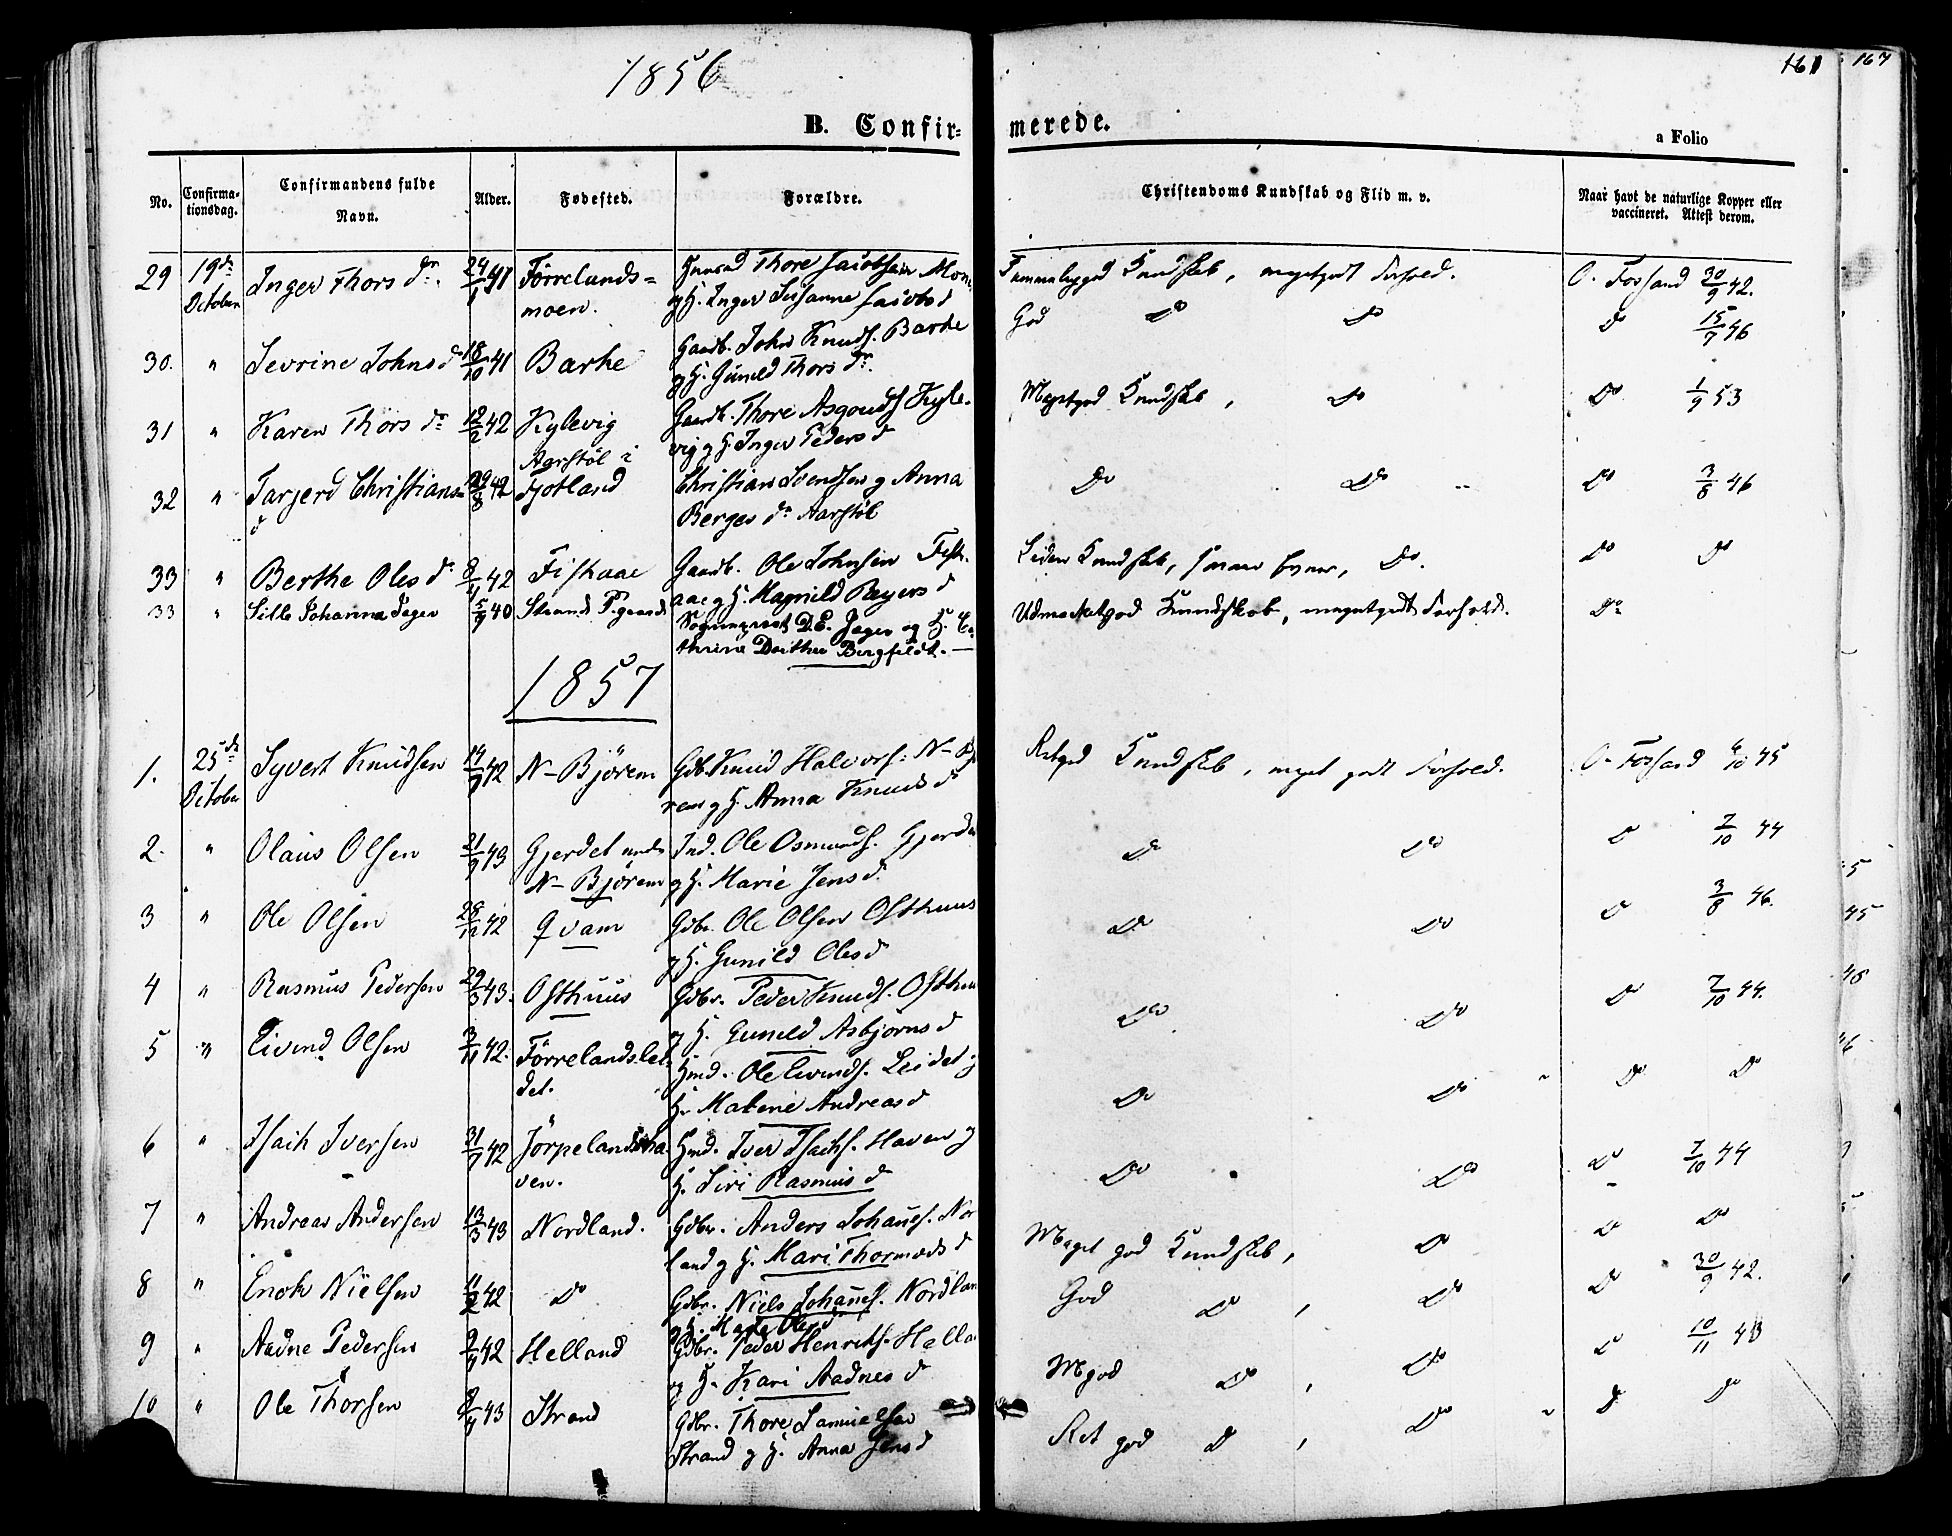 1856
161
167
B. Confir-
merede.
a Folio
No.
Confirma-
tionsdag.
Confirmandens fulde
Navn.
Alder.
Fødested.
Forældre.
Christendoms Kundskab og Flid m. v.
Naar havt de naturlige Kopper eller
vaccineret. Attest derom.
29 19de October Inger Thors dr. 24/1 41 Førrelands=
moen.
Thore Jacobsen
og H. Inger Susanne Jacobsd
Kundskab, megetgodt Forhold. O. Fossand 30/9 42.
30. " Sevrine Johnsd 18/10 41 Barke Gaardb. John Knuds. Barke
og H. Gunild Thors dr.
God Do Do Do 15/9 46
31 " Karen Thors dr 12/2 42 Kylevig Gaardb. Thore Asgouds Kyle-
vig og H. Inger Peders d
Megetgod Kundskab, Do Do 1/9 53
32 " Tarjerd Christians
d
29/8 42 Aarstöl i
Fjotland
Christian Svendsen og Anna
Berges dr Aarstöl
Do Do Do 3/8 46
33 " Berthe Oles dr 8/4 42 Fiskaae Gaardb. Ole Johnsen Fisk-
aae og H. Magnild Reyers d
Kundskab, smaae Evner, Do. Do Do
33 " Sille Johanna Jæger 5/9 40 Strands Pgaard Sognepræst D.E. Jæger og H. Ca-
thrine Dorthea Bergfeldt.
Udmærketgod Kundskab, megetgodt Forhold. Do
1857
1. 25de October Syvert Knudsen 14/9 42 N- Bjørem Gdb. Knud Halvors: N- Bjö
rem og H. Anna Knuds d
Retgod Kundskab, meget godt Forhold. O. Fossand 6/10 45
2. " Olaus Olsen 21/9 43 Gjerdet under
N- Bjørem
Ind. Ole Osmunds. Gjerde
og H. Marie Jens d.
Do Do Do 7/10 44
3 " Ole Olsen 28/12 42 Qvam Gdbr. Ole Olsen Osthuus
og H. Gunild Olesd
Do Do Do 3/8 46.
4 " Rasmus Pedersen 29/3 43. Osthuus Gdbr. Peder Knuds. Osthuu
og H. Gunild Asbjørns d
Do Do Do 7/10 44.
5 " Eivend Olsen 3/11 42. Førrelandslei
det.
Hmd. Ole Eivends. Leidet og
H. Malene Andreas d
Do Do Do Do
6 " Isach Iversen 31/7 42 Jørpelandsha
ven.
Hmd. Iver Isachs. Haven og
H. Siri Rasmus d
Do Do Do 7/10 44
7 " Andreas Andersen 13/3 43 Nordland. Gdbr. Anders Johanes. Nor
land og H. Mari Thormods d
Meget god Kundskab, Do Do Do
8 " Enok Nielsen 11/2 42 Do Gdbr. Niels Johanes. Nordlan
og H. Olesd
God Do, Do Do 30/9 42.
9 " Aadne Pedersen 9/9 42 Helland Gdbr. Peder Henriks. Hella
og H. Kari Aadnes d
Mgod Do, Do Do 10/11 43
10 " Ole Thorsen 43 Strand Gdbr. Thore Samuelsen
Strand og H. Anna Jens d
Ret god Do, Do Do Do